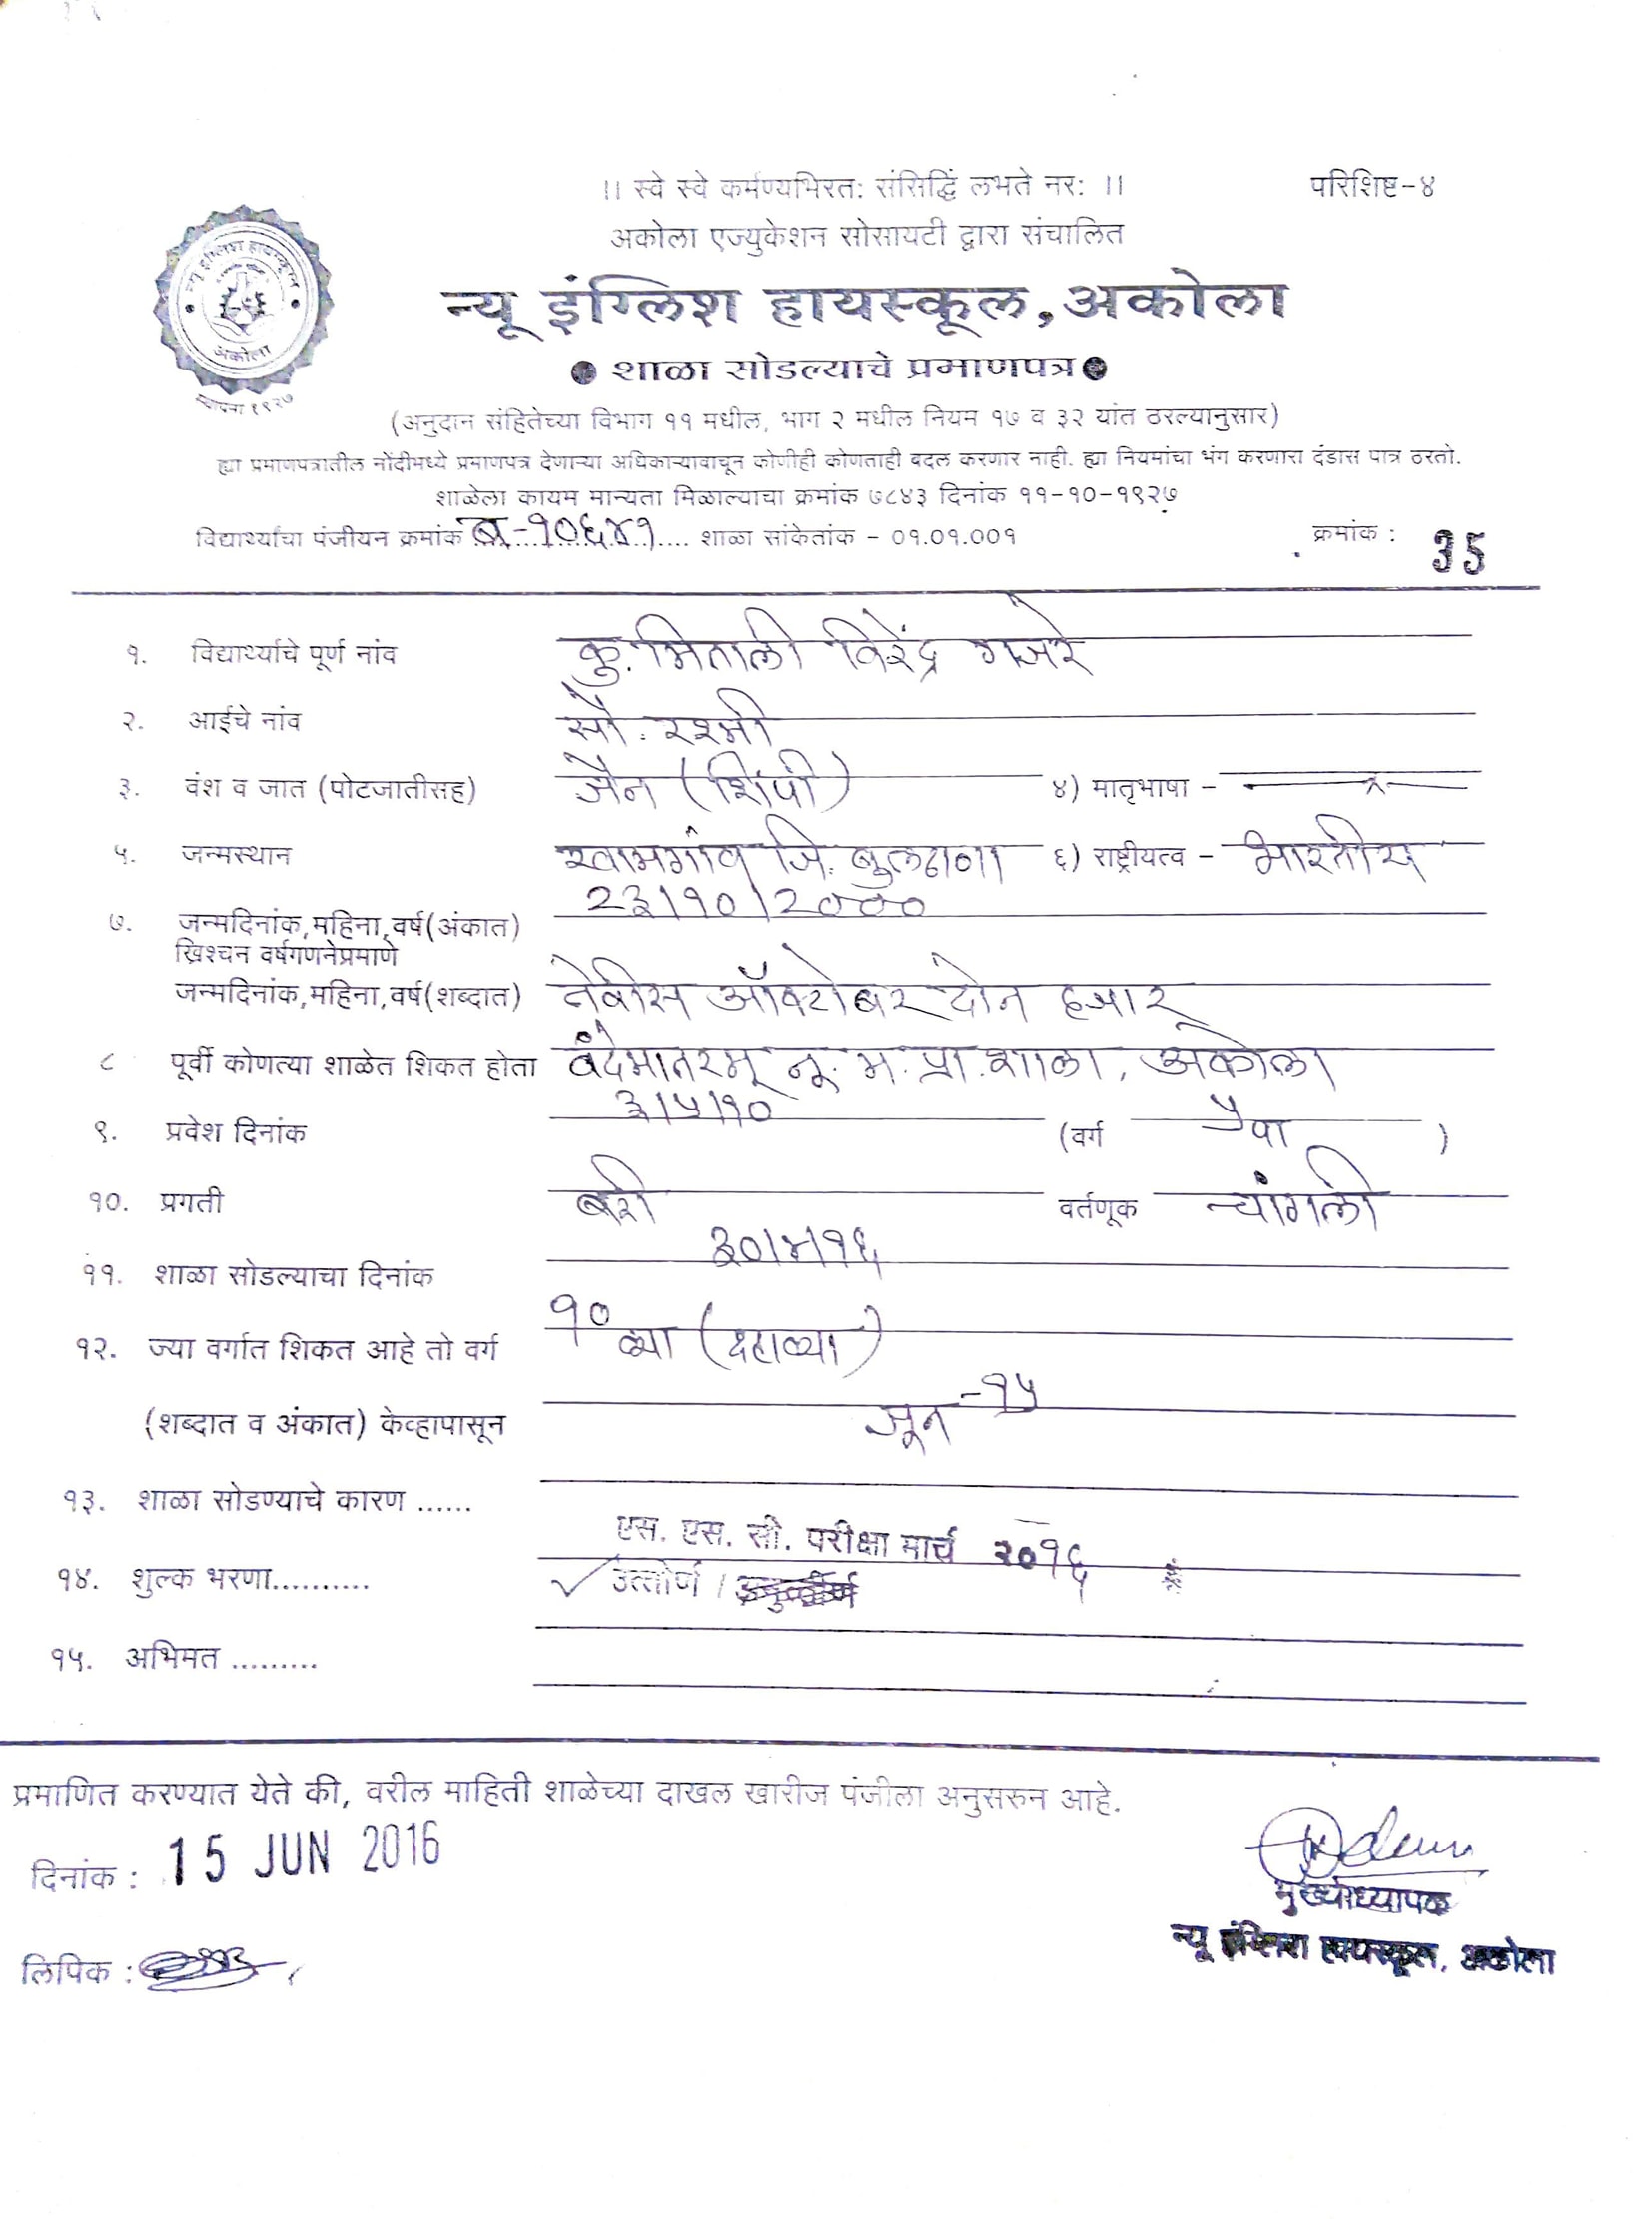 ।। स्वे स्वे कर्मण्यभिरतः संसिद्धिं लभते नरः ।। परिशिष्ट-४
अकोला एज्युकेशन सोसायटी द्वारा संचालित
न्यू इंग्लिश हायस्कूल, अकोला
न्यू इंग्लिश हायस्कूल
अकोला
स्थापना १९२७
शाळा सोडल्याचे प्रमाणपत्र
(अनुदान संहितेच्या विभाग ११ मधील, भाग २ मधील नियम १७ व ३२ यांत ठरल्यानुसार)
ह्या प्रमाणपत्रातील नोंदीमध्ये प्रमाणपत्र देणाऱ्या अधिकाऱ्यावाचून कोणीही कोणताही बदल करणार नाही. ह्या नियमांचा भंग करणारा दंडास पात्र ठरतो.
शाळेला कायम मान्यता मिळाल्याचा क्रमांक ७८४३ दिनांक ११-१०-१९२७
विद्यार्थ्याचा पंजीयन क्रमांक ब-१०६४१ .... शाळा सांकेतांक - ०१.०१.००१ क्रमांक : 35
१. विद्यार्थ्याचे पूर्ण नांव कु. मिताली विरेंद्र गजरे
२. आईचे नांव सौ. रश्मी
३. वंश व जात (पोटजातीसह) जैन (शिंपी) ४) मातृभाषा - —×—
५. जन्मस्थान खामगांव जि. बुलढाणा ६) राष्ट्रीयत्व - भारतीय
७. जन्मदिनांक,महिना,वर्ष(अंकात) २३/१०/२०००
ख्रिश्चन वर्षगणनेप्रमाणे
जन्मदिनांक,महिना,वर्ष(शब्दात) तेवीस ऑक्टोबर दोन हजार
८ पूर्वी कोणत्या शाळेत शिकत होता वंदेमातरम् नू. म. प्रा. शाळा, अकोला
९. प्रवेश दिनांक ३/५/१० (वर्ग ५वा )
१०. प्रगती बरी वर्तणूक चांगली
११. शाळा सोडल्याचा दिनांक ३०/४/१६
१२. ज्या वर्गात शिकत आहे तो वर्ग १० व्या (दहाव्या)
(शब्दात व अंकात) केव्हापासून जून -१५
१३. शाळा सोडण्याचे कारण ......
एस. एस. सी. परीक्षा मार्च २०१६
१४. शुल्क भरणा.......... ✓ उत्तीर्ण / अनुत्तीर्ण
१५. अभिमत .........
प्रमाणित करण्यात येते की, वरील माहिती शाळेच्या दाखल खारीज पंजीला अनुसरुन आहे.
दिनांक : 15 JUN 2016
मुख्याध्यापक
न्यू इंग्लिश हायस्कूल, अकोला
लिपिक :